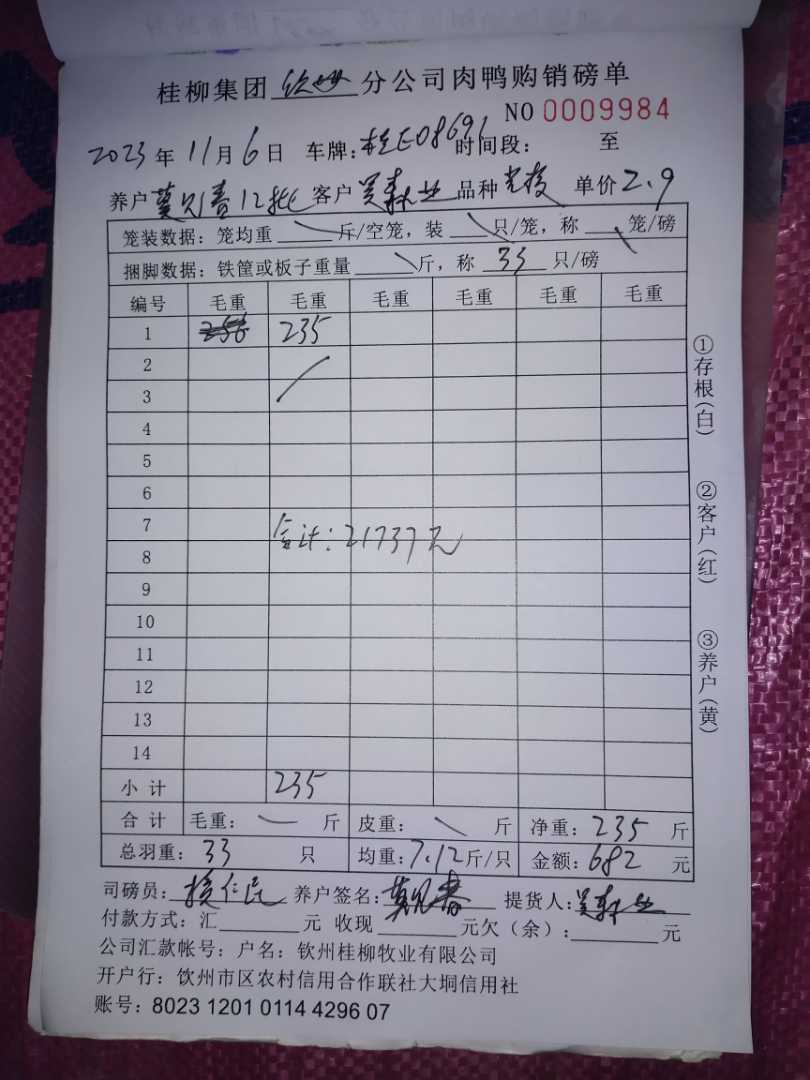 桂柳集团 分公司肉鸭购销磅单
NO 0009984
2023年11月6日 车牌:桂E08691 时间段: 至
养户 莫兄春12批 客户 吴森业 品种 单价 2.9
笼装数据:笼均重 斤/空笼,装 只/笼,称 笼/磅
捆脚数据:铁筐或板子重量 斤,称 33 只/磅
编号 毛重 毛重 毛重 毛重 毛重 毛重
1 235
2
3
4
5
6
7
合计:21737元
8
9
10
11
12
13
14
小计 235
合计 毛重: 斤 皮重: 斤 净重:235斤
总羽重:33 只 均重:7.12斤/只 金额:682元
司磅员: 养户签名:莫兄春 提货人:吴森业
付款方式:汇 元 收现 元欠(余): 元
公司汇款帐号:户名:钦州桂柳牧业有限公司
开户行:饮州市区农村信用合作联社大垌信用社
账号:8023 1201 0114 4296 07
①存根(白)
②客户(红)
③养户(黄)